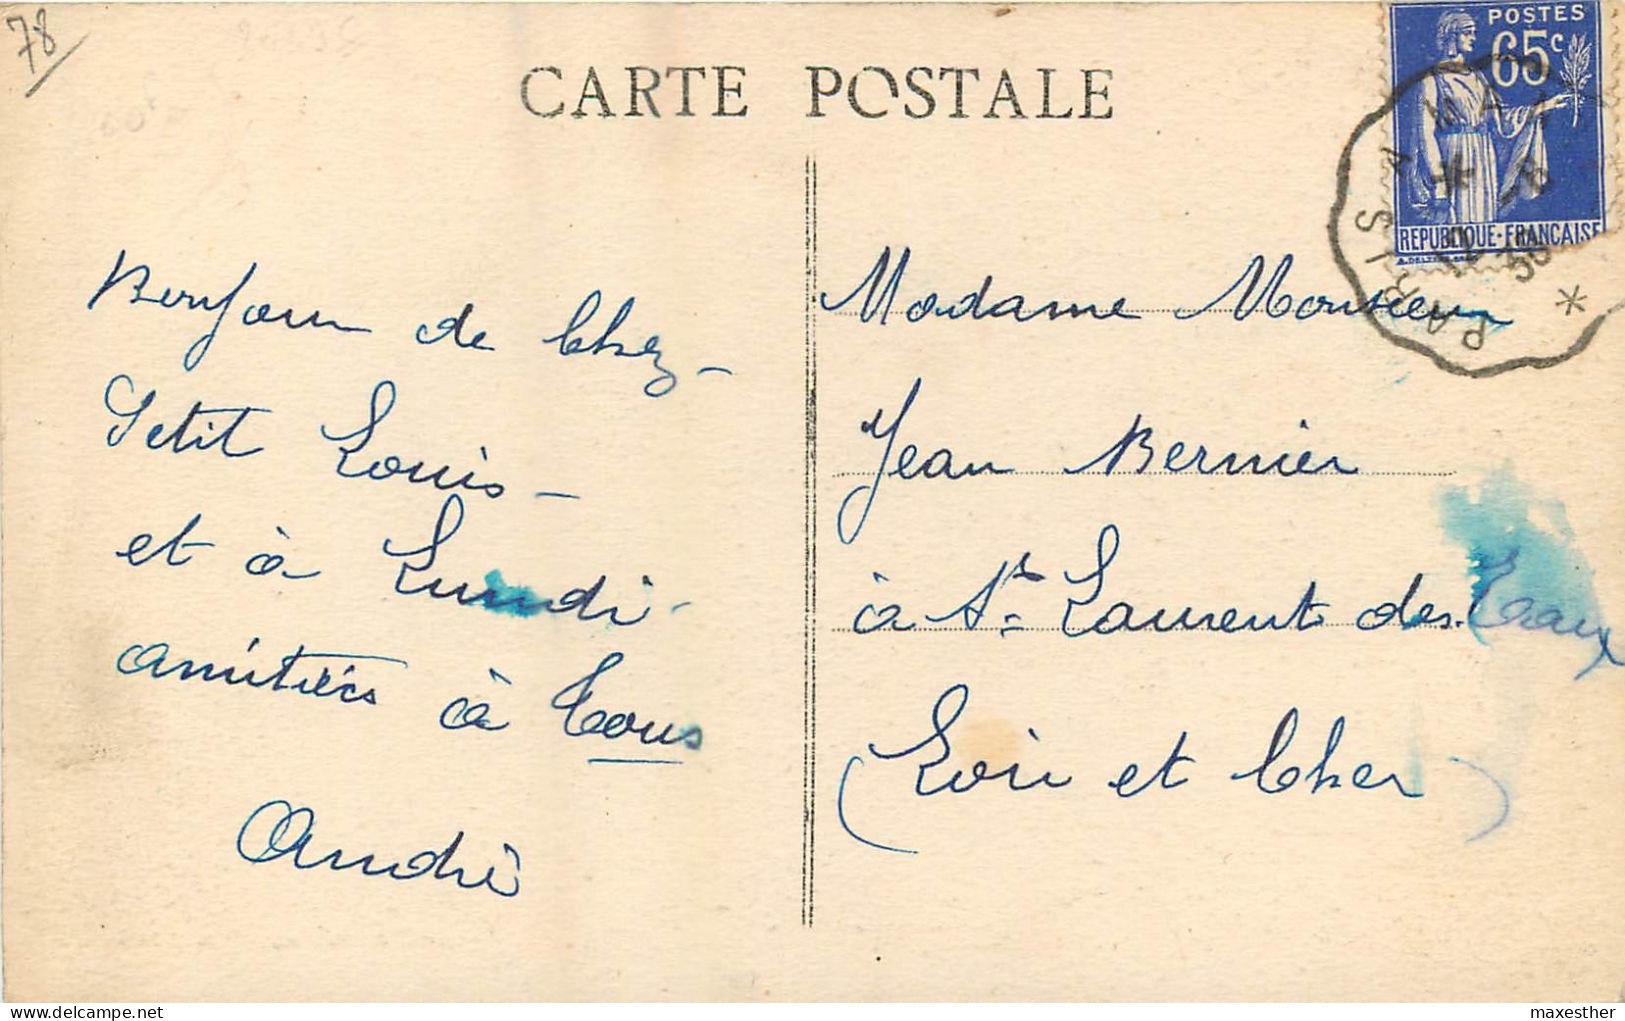 78
CARTE POSTALE
POSTES
65c
REPUBLIQUE-FRANÇAISE
PARIS A
Bonjour de Chez -
Petit Louis -
et à Lundi -
amitiés à Tous
André
Madame Monsieur
Jean Bernier
à St Laurent des Eaux
(Loir et Cher)
maxesther